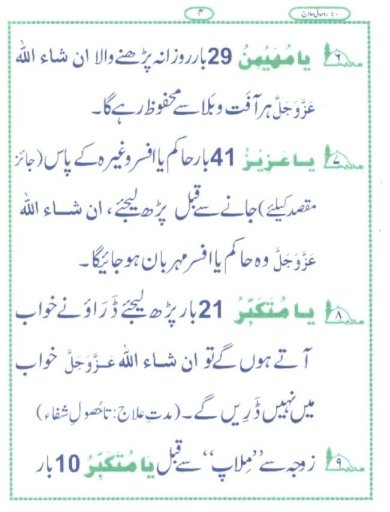 ۴۰ روحانی علاج
۴
۶ یا مُھَیْمِنُ 29 بار روزانہ پڑھنے والا ان شاء اللہ
عَزَّوَجَلَّ ہر آفت و بلا سے محفوظ رہے گا۔
۷ یا عَزِیْزُ 41 بار حاکم یا افسر وغیرہ کے پاس (جائز
مقصد کیلئے) جانے سے قبل پڑھ لیجئے، ان شاء اللہ
عَزَّوَجَلَّ وہ حاکم یا افسر مہربان ہو جائیگا۔
۸ یا مُتَکَبِّرُ 21 بار پڑھ لیجئے ڈَراؤنے خواب
آتے ہوں گے تو ان شاء اللہ عَزَّوَجَلَّ خواب
میں نہیں ڈریں گے۔ (مدتِ علاج: تا حُصولِ شفاء)
۹ زوجہ سے ’’مِلاپ‘‘ سے قبل یَا مُتَکَبِّرُ 10 بار